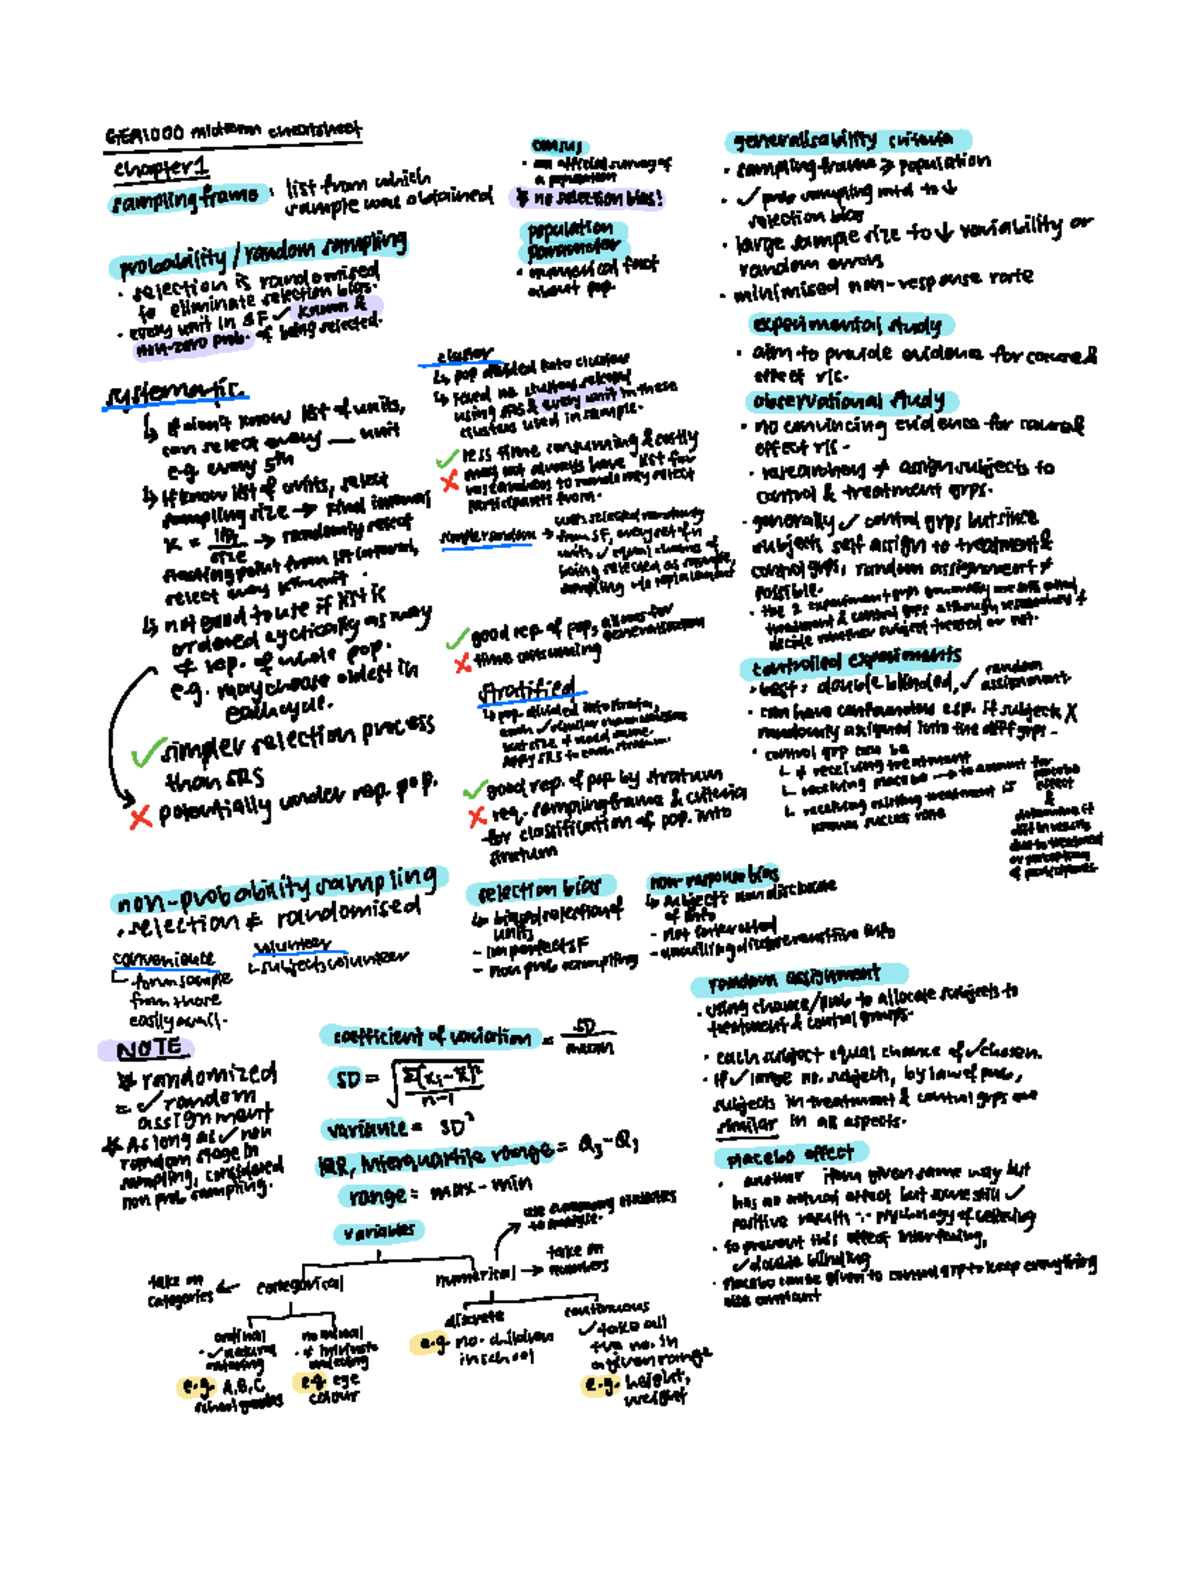 GEA1000 midterm cheatsheet
chapter 1
sampling frame : list from which
sample was obtained
probability / random sampling
· selection is randomised
to eliminate selection bias.
· every unit in SF ✓ known &
non-zero prob. of being selected.
systematic
↳ if don't know list of units,
can select every __ unit
e.g. every 5th
↳ if know list of units, select
sampling size → find interval
K = size → randomly select
starting point from 1st interval,
select every kth unit.
↳ not good to use if list is
ordered cyclically as may
≠ rep. of whole pop.
e.g. may choose oldest in
each cycle.
✓ simpler selection process
than SRS
✗ potentially under rep. pop.
census
· an official survey of
a population
* no selection bias!
population
parameter
· numerical fact
about pop.
cluster
↳ pop divided into clusters
↳ fixed no. clusters selected
using SRS & every unit in these
clusters used in sample.
✓ less time consuming & costly
✗ may not always have list for
researchers to randomly select
participants from.
simple random → units selected randomly
from SF, every set of n
units ✓ equal chance of
being selected as sample,
sampling w/o replacement
✓ good rep. of pop, allows for
generalisation
✗ time consuming
stratified
↳ pop. divided into strata,
each ✓ similar characteristics
but size ≠ need same.
apply SRS to each stratum.
✓ good rep. of pop by stratum
✗ req. sampling frame & criteria
for classification of pop. into
stratum
generalisability criteria
· sampling frame ≥ population
· ✓ prob sampling mtd to ↓
selection bias
· large sample size to ↓ variability or
random errors
· minimised non-response rate
experimental study
· aim to provide evidence for cause &
effect r/s.
observational study
· no convincing evidence for cause &
effect r/s.
· researchers ≠ assign subjects to
control & treatment grps.
· generally ✓ control grps but since
subjects self assign to treatment &
control grps, random assignment ≠
possible.
· the 2 experiment grps generally are still called
treatment & control grps although researchers ≠
decide whether subject treated or not.
controlled experiments
· best: double blinded, ✓ random
assignment.
· can have confounders esp. if subject X
randomly assigned into the diff grps.
· control grp can be
↳ ≠ receiving treatment
↳ receiving placebo → to account for placebo effect &
↳ receiving existing treatment is
known success rate
due to treatment
non-probability sampling
· selection ≠ randomised
convenience
↳ form sample
from those
easily avail.
volunteer
↳ subjects volunteer
selection bias
↳ biased selection of
units
- imperfect SF
- non prob sampling
non-response bias
↳ subjects' non disclosure
of info
- not interested
- unwilling disclose sensitive info
NOTE
* randomized
= ✓ random
assignment
* As long as ✓ non
random stage in
sampling, considered
non prob sampling.
coefficient of variation = SD / mean
SD = √ Σ(xᵢ - x̄)² / n-1
variance = SD²
IQR, interquartile range = Q₃-Q₁
range = max - min
variables
take on
categories ← categorical
numerical → take on
numbers
use summary statistics
to analyse.
ordinal
· ✓ natural
ordering
e.g. A,B,C
school grades
nominal
· ≠ intrinsic
ordering
e.g. eye
colour
discrete
e.g. no. children
in school
continuous
✓ take all
+ve no. in
a given range
e.g. height,
weight
random assignment
· using chance/prob to allocate subjects to
treatment & control groups.
· each subject equal chance of ✓ chosen.
· if ✓ large no. subject, by law of prob,
subjects in treatment & control grps are
similar in all aspects.
placebo effect
· another item given same way but
has no actual effect but some still ✓
positive result ∵ psychology of believing
· to prevent this effect interfering,
✓ double blinding
· placebo can be given to control grp to keep everything
else constant